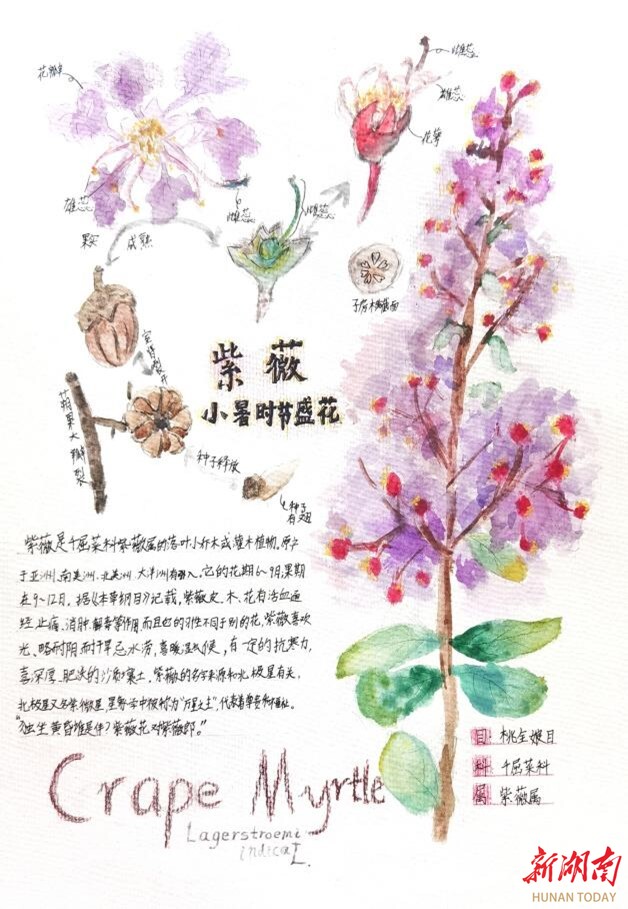 花瓣
雄蕊
雌蕊
雌蕊
雌蕊
雄蕊
花萼
果实
成熟
子房横截面
紫薇
小暑时节盛花
蒴果六瓣裂
种子释放
种子
有翅
紫薇是千屈菜科紫薇属的落叶小乔木或灌木植物。原产
于亚洲、南美洲、北美洲、大洋洲有引入。它的花期6~9月,果期
在9~12月。据《本草纲目》记载,紫薇皮、木、花有活血通
经、止痛、消肿、解毒等作用。而且它的习性不同于别的花,紫薇喜欢
光、略耐阴、耐干旱忌水涝,喜暖湿气候,有一定的抗寒力,
喜深厚、肥沃的沙质壤土。紫薇的名字来源和北极星有关,
北极星又名紫微星,星
“独坐黄昏谁是伴?紫薇花对紫薇郎。”
Crape Myrtle
Lagerstroemi
indica L.
目: 桃金娘目
科: 千屈菜科
属: 紫薇属
新湖南
HUNAN TODAY